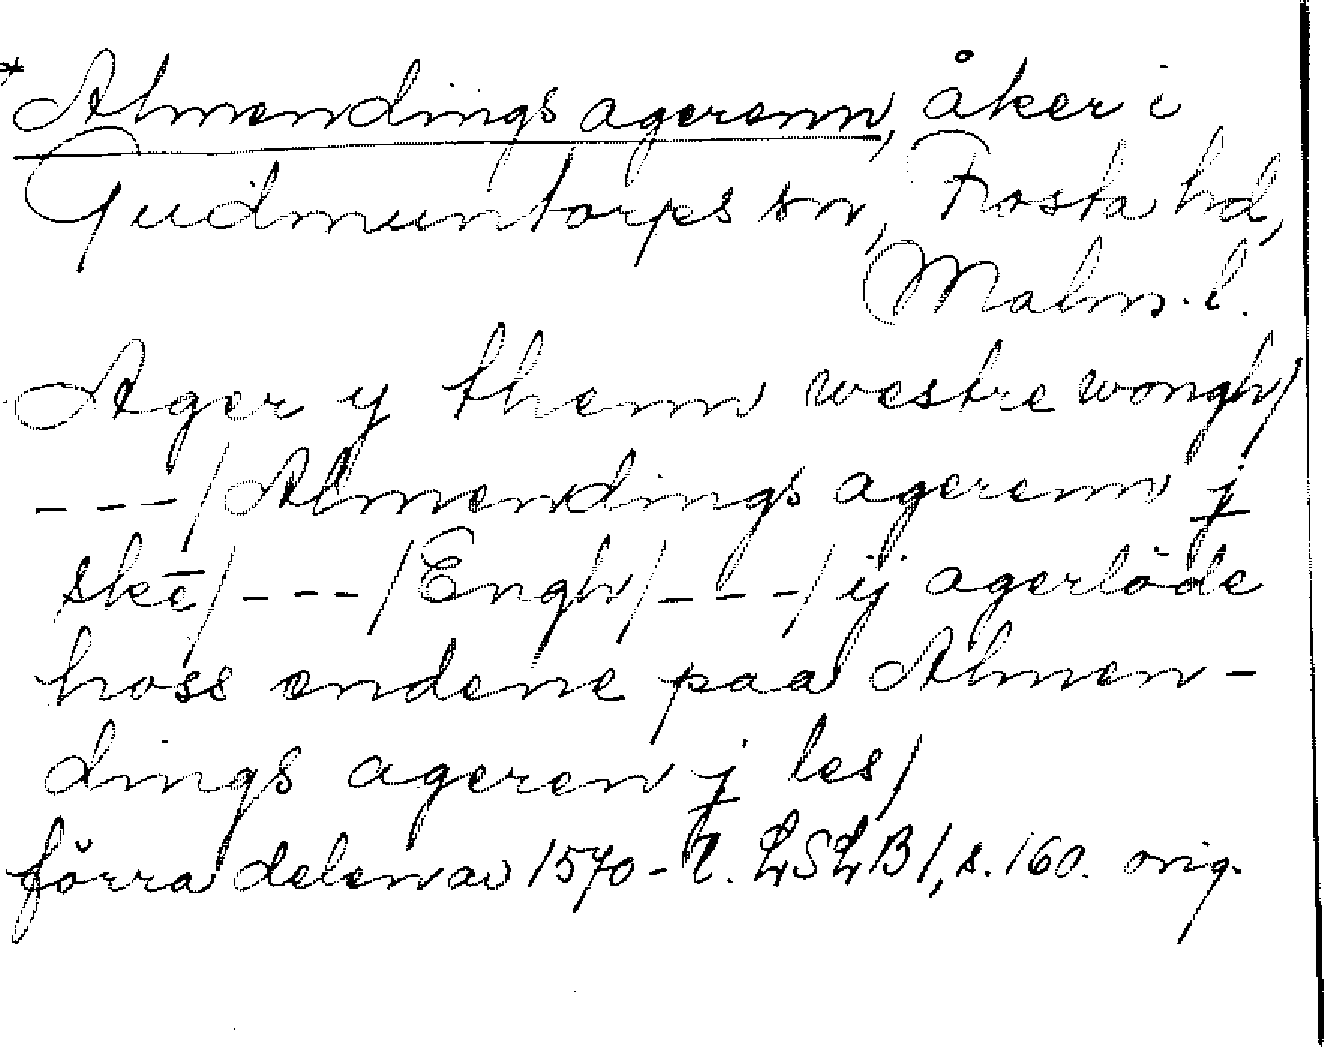 *Almendings agerenn, åker i
Gudmuntorps sn, Frosta hd,
Malm. l.
Ager y thenn westre wongh/
---/Almendings agerenn j
skē/---/Engh/---/ij agerløde
hoss endene paa Almen-
dings ageren j les/
förra delen av 1570-t. LSLB 1, s. 160. orig.